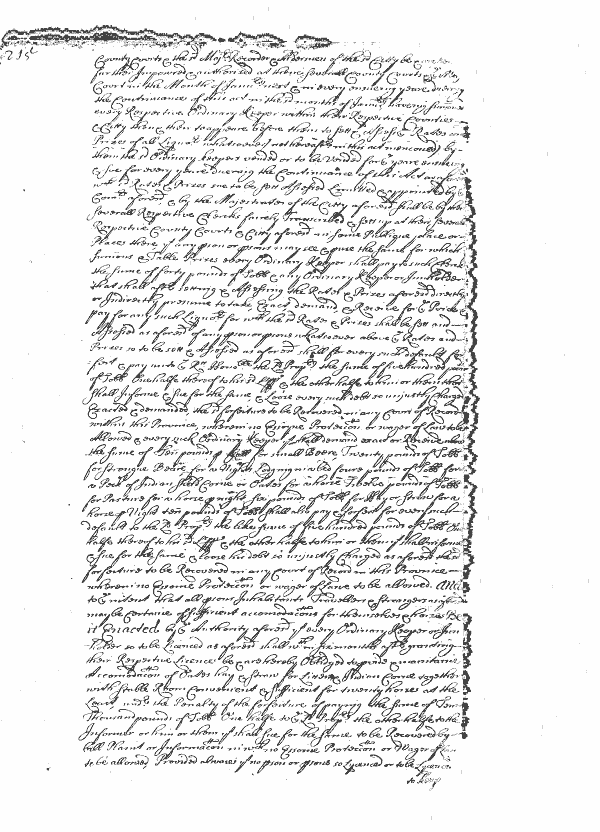 215
County Courts & the sd Mayr Recorder & Aldermen of the sd Citty be &
further Impowered & authorized at their severall County Courts &
Court in the Month of January next & in every ensueing yeare during
the Continuance of this act in the sd month of January having
every Respective Ordinary Keeper within their Respective Counties
& Citty then & there to appeare before them to sett & Assess Rates
Prizes of all Liquors whatsoever not hereafter in this act menconed by
them the sd Ordinary Keepers vended or to be Vended for ye yeare ensueing
& soe for every yeare during the Continuance of this Act as aforesd
wch sd Rates & Prizes soe to be sett Assessed Limitted & appointed by ye
Comrs aforesd & by the Magistrates of the Citty aforesd shall be by their
severall Respective Clerks fairely Transcribed & sett up at their severall
Respective County Courts & Citty aforesd in some Publique place or
Places there yt any pson or psons may see & pruse the same for which
& Table Prizes every Ordinary Keeper shall pay to such Clerk
the sume of forty pounds of Tobb & any Ordinary Keeper or Innholder
that shall after setting & Assessing the Rates & Prizes aforesd directly
or Indirectly presume to take Exact demand & Receive for ye Price &
pay for any such Liquors for wch the sd Rates & Prizes shall be sett and
Assessed as aforesd of any pson or psons whatsoever above ye Rates and
Prizes so to be sett & Assessed as aforesd shall for every such default for
feit & pay unto ye Rt Honoble the Ld Propry the sume of five hundred pounds
of Tobb One halfe thereof to his sd Lspp & the other halfe to him or them that
shall Informe & sue for the same & Loose every such debt so unjustly Charged
Exacted & demanded, the sd forfeiture to be Recovered in any Court of Record
within this Province, wherein no Essoyne Protection or wager of Law to be
Allowed & every such Ordinary Keeper yt shall demand exact or Receive above
the sume of Tenn pounds p for small Beere Twenty pounds of Tobb
for strongue Beere for a Nights Lodging in a bed foure pounds of Tobb for
a Peck of Indian Corne or Oates for a horse Twelve pounds of Tobb
for Pasture for a horse p night six pounds of Tobb for Hay or Straw for a
horse p Night ten pounds of Tobb shall also pay & forfeit for every such
default to the Ld Propry the like sume of five hundred pounds of Tobb One
halfe thereof to his sd Lspp & the other halfe to him or them yt shall informe
& sue for the same & Loose his debt so unjustly charged as aforesd the sd
forfeiture to be Recovered in any Court of Record in this Province
wherein no Essoyne Protection or wager of Lawe to be allowed. And
to ye intent that all psons Inhabitants Travellers & strangers
may be Certaine of sufficient accomodacons for themselves & horses Be
it Enacted by ye Authority aforesd yt every Ordinary Keeper or Inn
holder so to be Licenced as aforesd shall wth in six months after granting
their Respective Licence be & are hereby Obliged to provide & maintaine
Accomodacon of Oates hay & straw for Litter & Indian Corne together
with stable Room Convenient & sufficient for twenty horses at the
Least under the Penalty of the forfeiture of paying the sume of Tenn
Thousand pounds of Tobb One halfe to ye Ld Propry the other halfe to the
Informer or him or them yt shall sue for the same to be Recovered by
bill Plaint or Information wherein no Essoyne Protection or Wager of Law
to be allowed, Provided alwaies yt no pson or psons so Lycenced or to be Lycenced
to keep